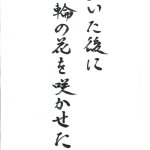 いた後に
輪の花を咲かせた